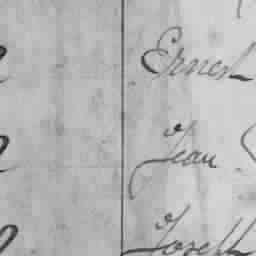 Ernest
Jean
Joseph